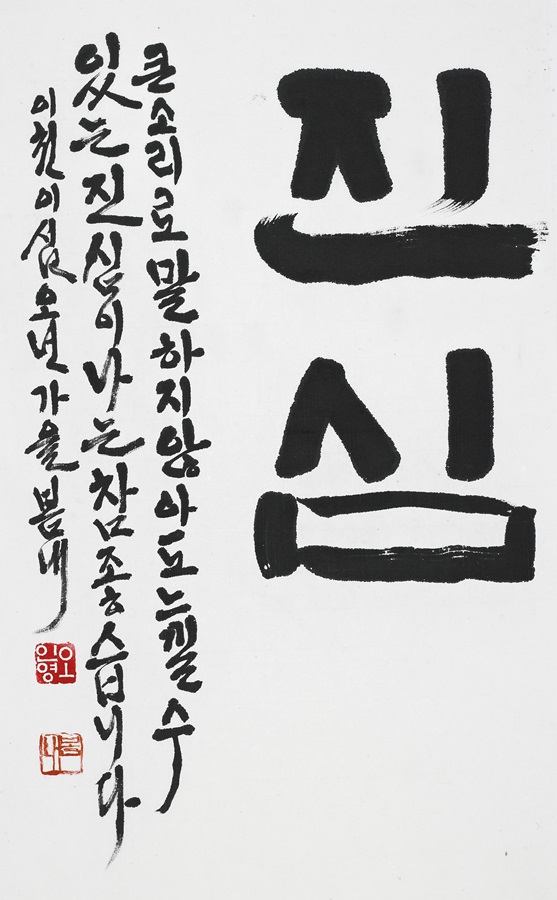 진심
큰소리로말하지않아도느낄수
있는진심이나는참좋습니다
이천이십오년가을봄내